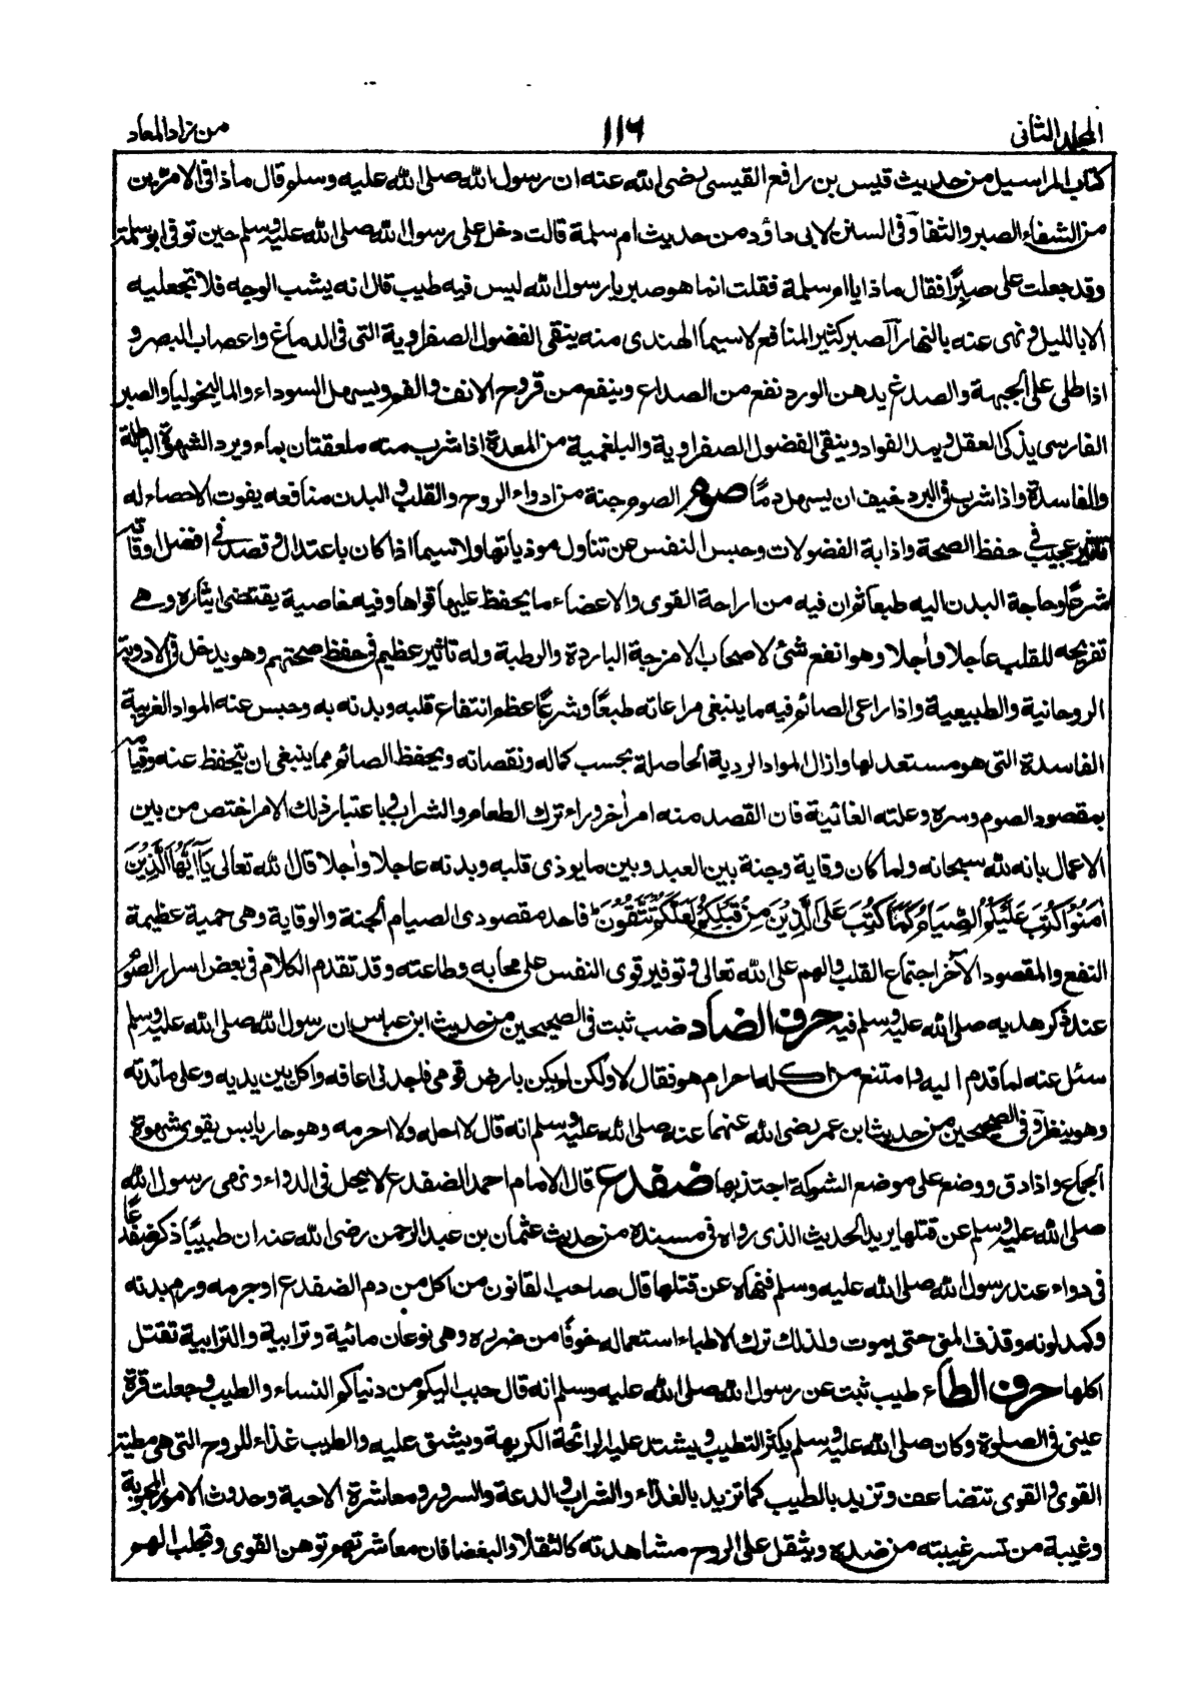 المجلد الثانى
١١٦
من زاد المعاد
كتاب المراسيل من حديث قيس بن رافع القيسى رضى الله عنه ان رسول الله صلى الله عليه وسلم قال ماذا فى الامرّين
من الشفاء الصبر والثفاء وفى السنن لابى داؤد من حديث ام سلمة قالت دخل على رسول الله صلى الله عليه وسلم حين توفى ابو سلمة
وقد جعلت على صبرًا فقال ماذا يا ام سلمة فقلت انما هو صبر يا رسول الله ليس فيه طيب قال انه يشب الوجه فلا تجعليه
الا بالليل ونهى عنه بالنهار الصبر كثير المنافع لا سيما الهندى منه ينقى الفضول الصفراوية التى فى الدماغ واعصاب البصر و
اذا طلى على الجبهة والصدغ بدهن الورد نفع من الصداع وينفع من قروح الانف والفم ويسهل السوداء والماليخوليا والصبر
الفارسى يذكى العقل ويمد الفواد وينقى الفضول الصفراوية والبلغمية من المعدة اذا شرب منه ملعقتان بماء ويرد الشهوة الباطلة
والفاسدة واذا شرب فى البرد خيف ان يسهل دمًا صوم الصوم جنة من ادواء الروح والقلب والبدن منافعه يفوت الاحصاء له
تاثير عجيب فى حفظ الصحة واذابة الفضولات وحبس النفس عن تناول موذياتها ولا سيما اذا كان باعتدال وقصد فى افضل اوقاته
شرعًا وحاجة البدن اليه طبعا ثم ان فيه من اراحة القوى والاعضاء ما يحفظ عليها قواها وفيه خاصية يقتضى ايثاره وهى
تفريحه للقلب عاجلا وأجلا وهو انفع شئ لاصحاب الامزجة الباردة والرطبة وله تاثير عظيم فى حفظ صحتهم وهو يدخل فى الادوية
الروحانية والطبيعية واذا راعى الصائم فيه ما ينبغى مراعاته طبعًا وشرعًا عظم انتفاع قلبه وبدنه به وحبس عنه المواد الغريبة
الفاسدة التى هو مستعد لها وازال المواد الردية الحاصلة بحسب كماله ونقصانه ويحفظ الصائم مما ينبغى ان يتحفظ عنه وقيامه
بمقصود الصوم وسره وعلته الغائية فان القصد منه امر أخر وراء ترك الطعام والشراب وباعتبار ذلك الامر اختص من بين
الاعمال بانه لله سبحانه ولما كان وقاية وجنة بين العبد وبين ما يوذى قلبه وبدنه عاجلا وأجلا قال الله تعالى يَآ اَيُّهَا الَّذِيْنَ
اٰمَنُوْا كُتِبَ عَلَيْكُمُ الصِّيَامُ كَمَا كُتِبَ عَلَى الَّذِيْنَ مِنْ قَبْلِكُمْ لَعَلَّكُمْ تَتَّقُوْنَ فاحد مقصودى الصيام الجنة والوقاية وهى حمية عظيمة
النفع والمقصود الآخر اجتماع القلب والهم على الله تعالى وتوفير قوى النفس على محابه وطاعته وقد تقدم الكلام فى بعض اسرار الصوم
عند ذكر هديه صلى الله عليه وسلم فيه حرف الضاد ضب ثبت فى الصحيحين من حديث ابن عباس ان رسول الله صلى الله عليه وسلم
سئل عنه لما قدم اليه وامتنع من اكله احرام هو فقال لا ولكن لم يكن بارض قومى فاجدنى اعافه واكل بين يديه وعلى مائدته
وهو ينظر وفى الصحيحين من حديث ابن عمر رضى الله عنهما عنه صلى الله عليه وسلم انه قال لا احله ولا احرمه وهو حار يابس يقوى شهوة
الجماع واذا دق ووضع على موضع الشوكة اجتذبها ضفدع قال الامام احمد الضفدع لا يحل فى الدواء ونهى رسول الله
صلى الله عليه وسلم عن قتلها يريد الحديث الذى رواه فى مسنده من حديث عثمان بن عبد الرحمن رضى الله عنه ان طبيبًا ذكر ضفدعًا
فى دواء عند رسول الله صلى الله عليه وسلم فنهاه عن قتلها قال صاحب القانون من اكل من دم الضفدع او جرمه ورم بدنه
وكمد لونه وقذف المنى حتى يموت ولذلك ترك الاطباء استعماله خوفًا من ضرره وهى نوعان مائية وترابية والترابية تقتل
اكلها حرف الطاء طيب ثبت عن رسول الله صلى الله عليه وسلم انه قال حبب اليكم من دنياكم النساء والطيب وجعلت قرة
عينى فى الصلوة وكان صلى الله عليه وسلم يكثر التطيب ويشتد عليه الرائحة الكريهة ويشق عليه والطيب غذاء للروح التى هى مطية
القوى والقوى تتضاعف وتزيد بالطيب كما تزيد بالغذاء والشراب والدعة والسرور ومعاشرة الاحبة وحدوث الامور المحبوبة
وغيبة من تسر غيبته من ضده ويثقل على الروح مشاهدته كالثقلا والبغضا فان معاشرتهم توهن القوى وتجلب الهم